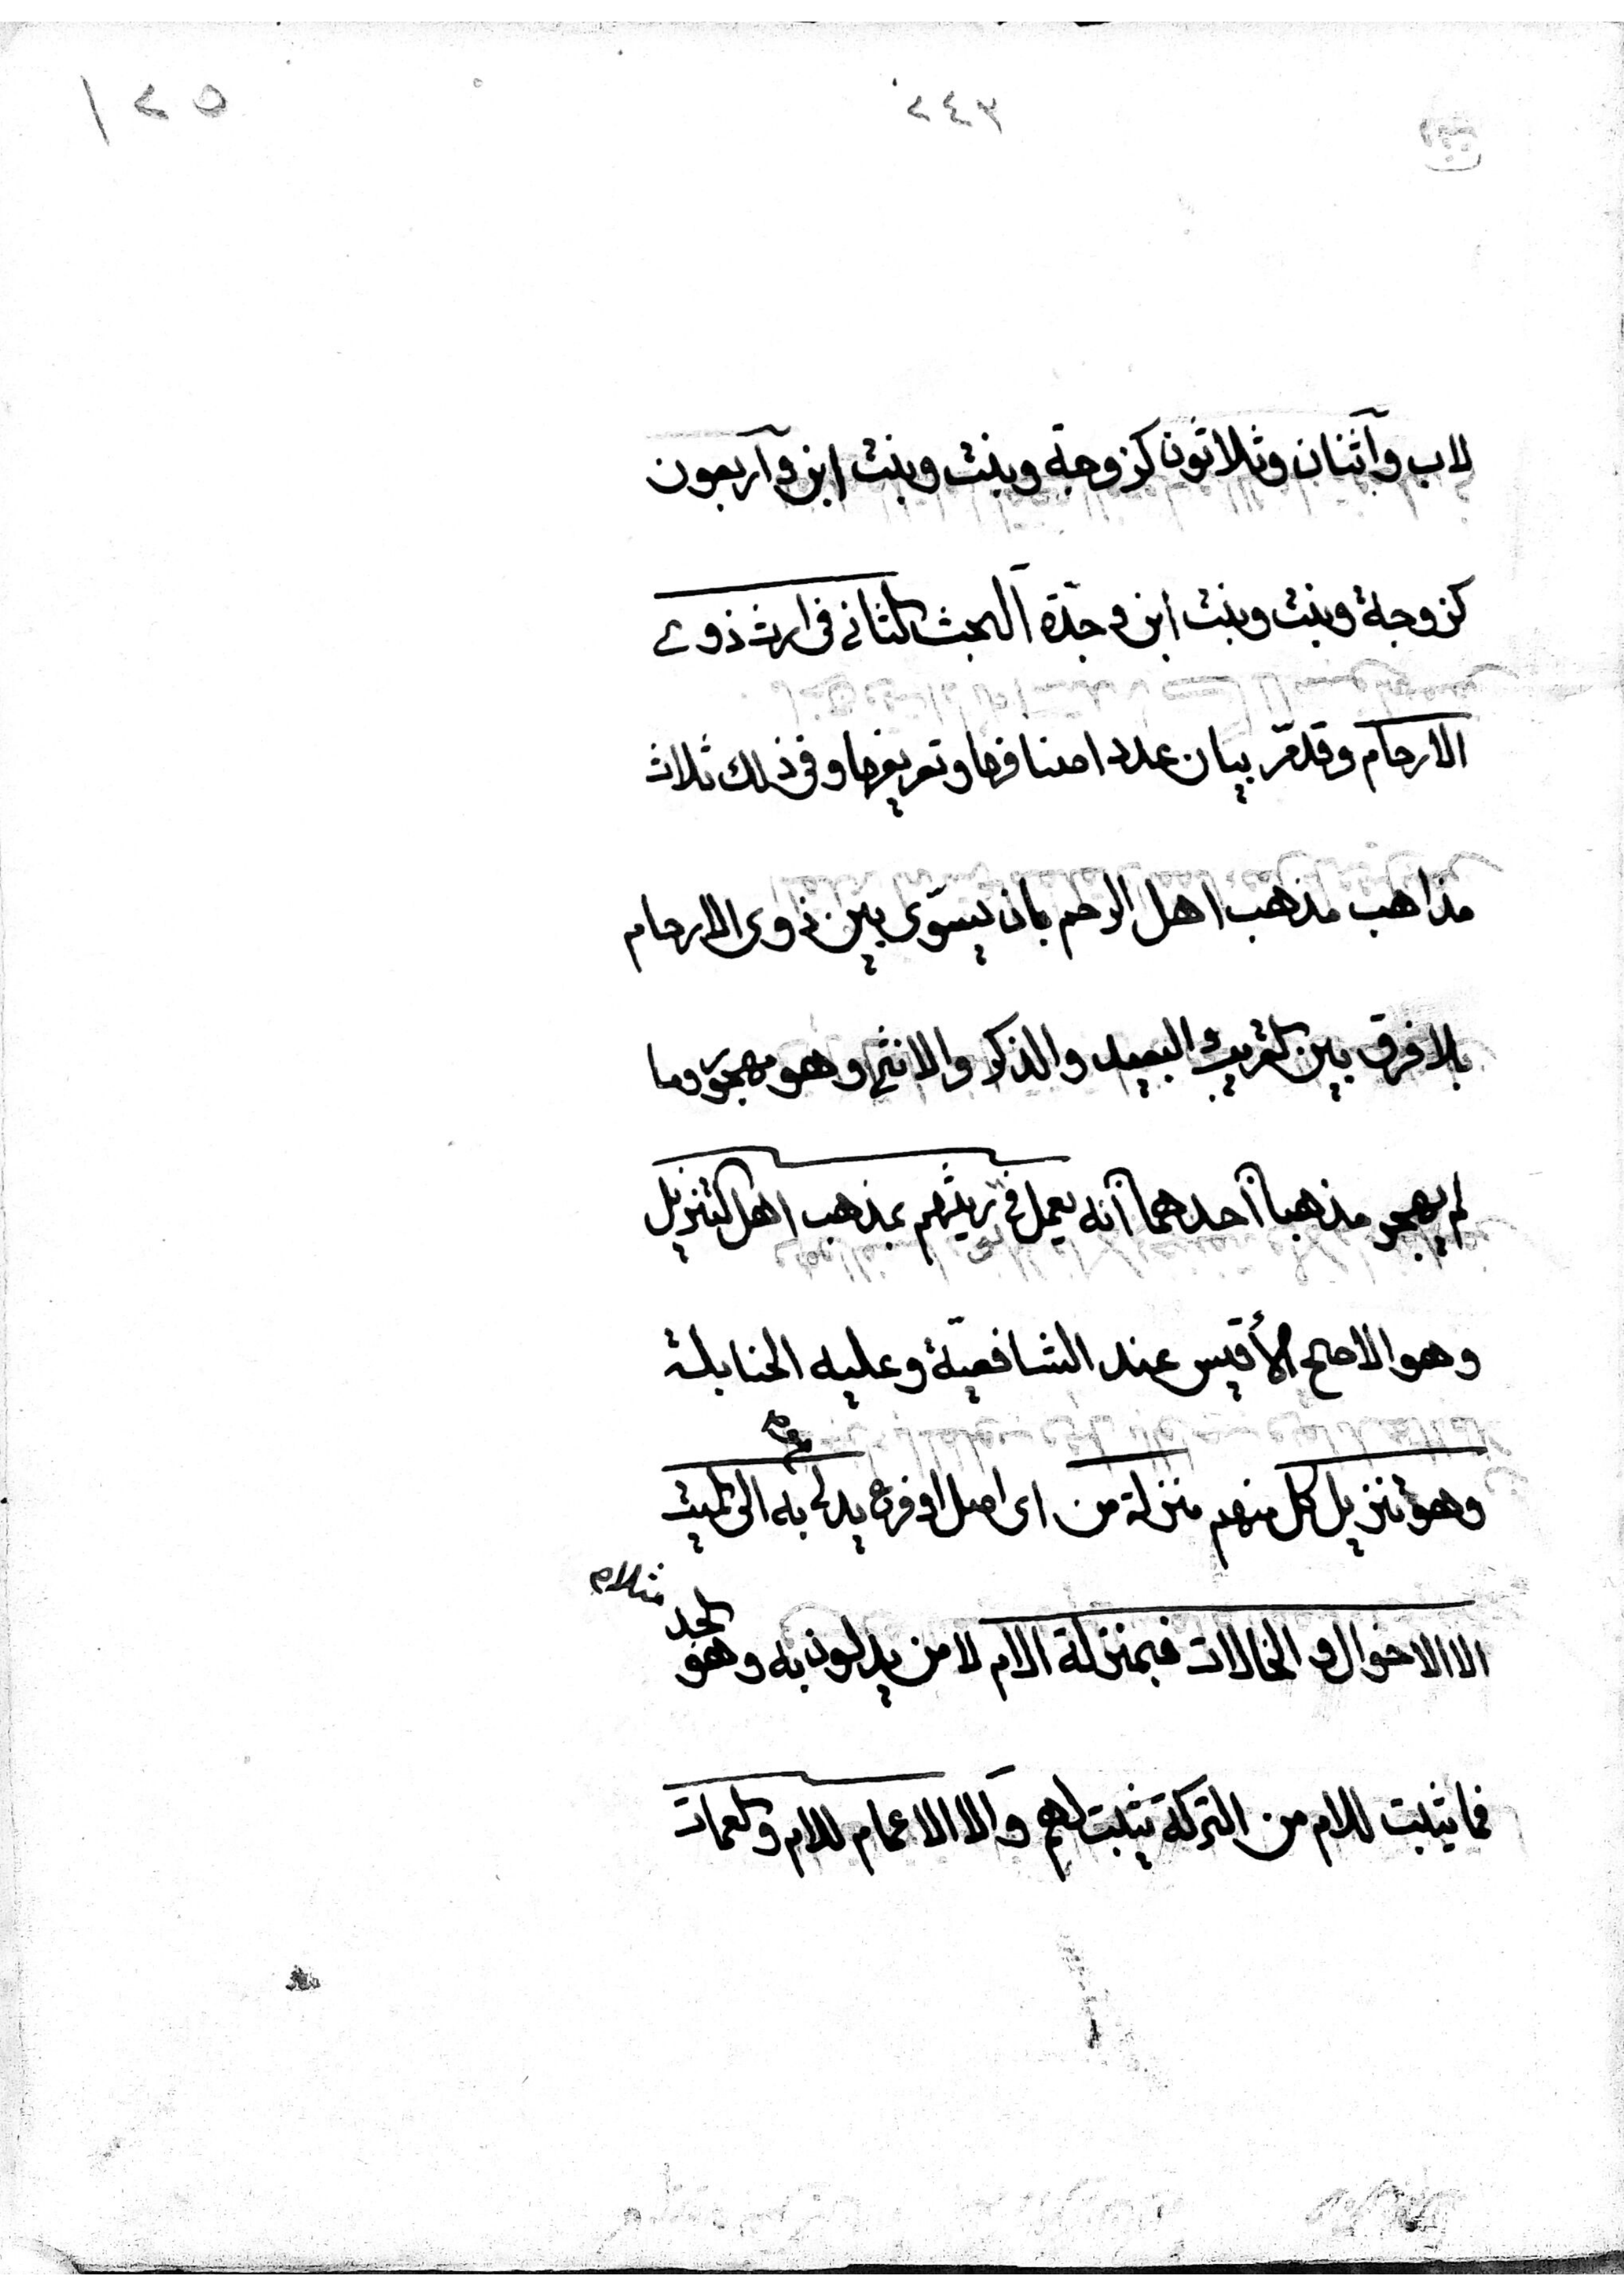 ١٢٥
٢٤٣
لاب واثنان وثلاثون كزوجة وبنت وبنت ابن واربعون
كزوجة وبنت وبنت ابن وجدّة البحث الثاني في ارث ذوي
الارحام وقد مرّ بيان عدد اصنافها وتعريفها وفي ذلك ثلاث
مذاهب مذهب اهل الرحم بان يسوّى بين ذوى الارحام
بلا فرق بين القريب والبعيد والذكر والانثى وهو مهجور وما
لم يهجر مذهبا احدهما انه يعمل في توريثهم بمذهب اهل التنزيل
وهو الاصح الأقيس عند الشافعيّة وعليه الحنابلة
وهو تنزيل كل منهم منزلة من اى اصل او فرع يدلي به الى الميت
الا الاخوال والخالات فبمنزلة الام لا من يدلون به وهو الجد
مثلا
فما يثبت للام من التركة يثبت لهم والا الاعمام للام والعمات